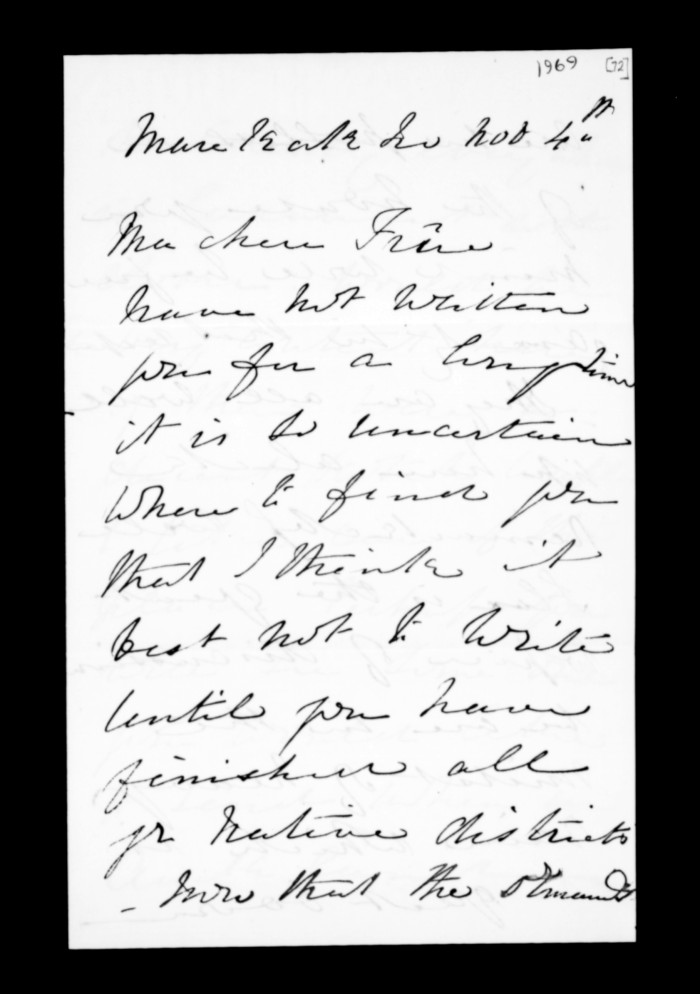 1969 [72]
Mare Kaka Nov 4th
Ma chere Frûe
have not written
you for a long time
it is so uncertain
where to find you
that I think it
best not to write
until you have
finished all
yr native districts
- Now that the